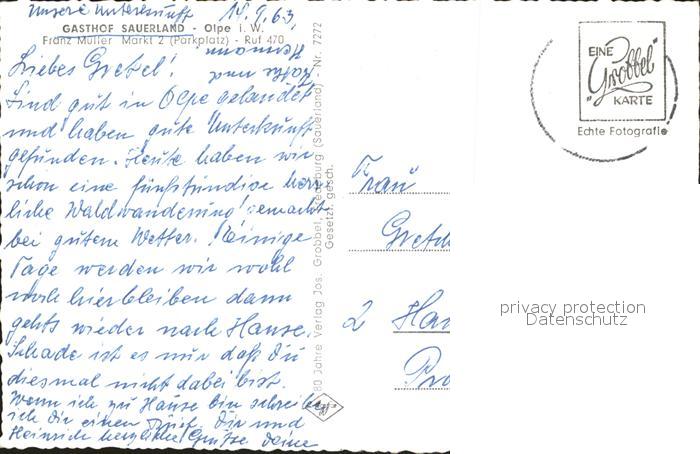 Unsere Unterkunft 15.9.63,
GASTHOF SAUERLAND - Olpe i. W.
Franz Müller Markt 2 (Parkplatz) - Ruf 470
Liebes Gretel!
Sind gut in Olpe gelandet
und haben gute Unterkunft
gefunden. Heute haben wir
schon eine fünfstündige herr
liche Waldwanderung gemacht
bei gutem Wetter. Einige
Tage werden wir wohl
noch hierbleiben dann
gehts wieder nach Hause.
Schade ist es nur daß Du
diesmal nicht dabei bist.
Wenn ich zu Hause bin schreibe
ich Dir einen Brief. Dir und
Heinrich herzliche Grüße Deine
80 Jahre Verlag Jos. Grobbel, (Sauerland) - Nr. 7272
Gesetzl. gesch.
EINE
"Grobbel"
KARTE
Echte Fotografie
Frau
Gretch
2 Han
Pro
privacy protection
Datenschutz